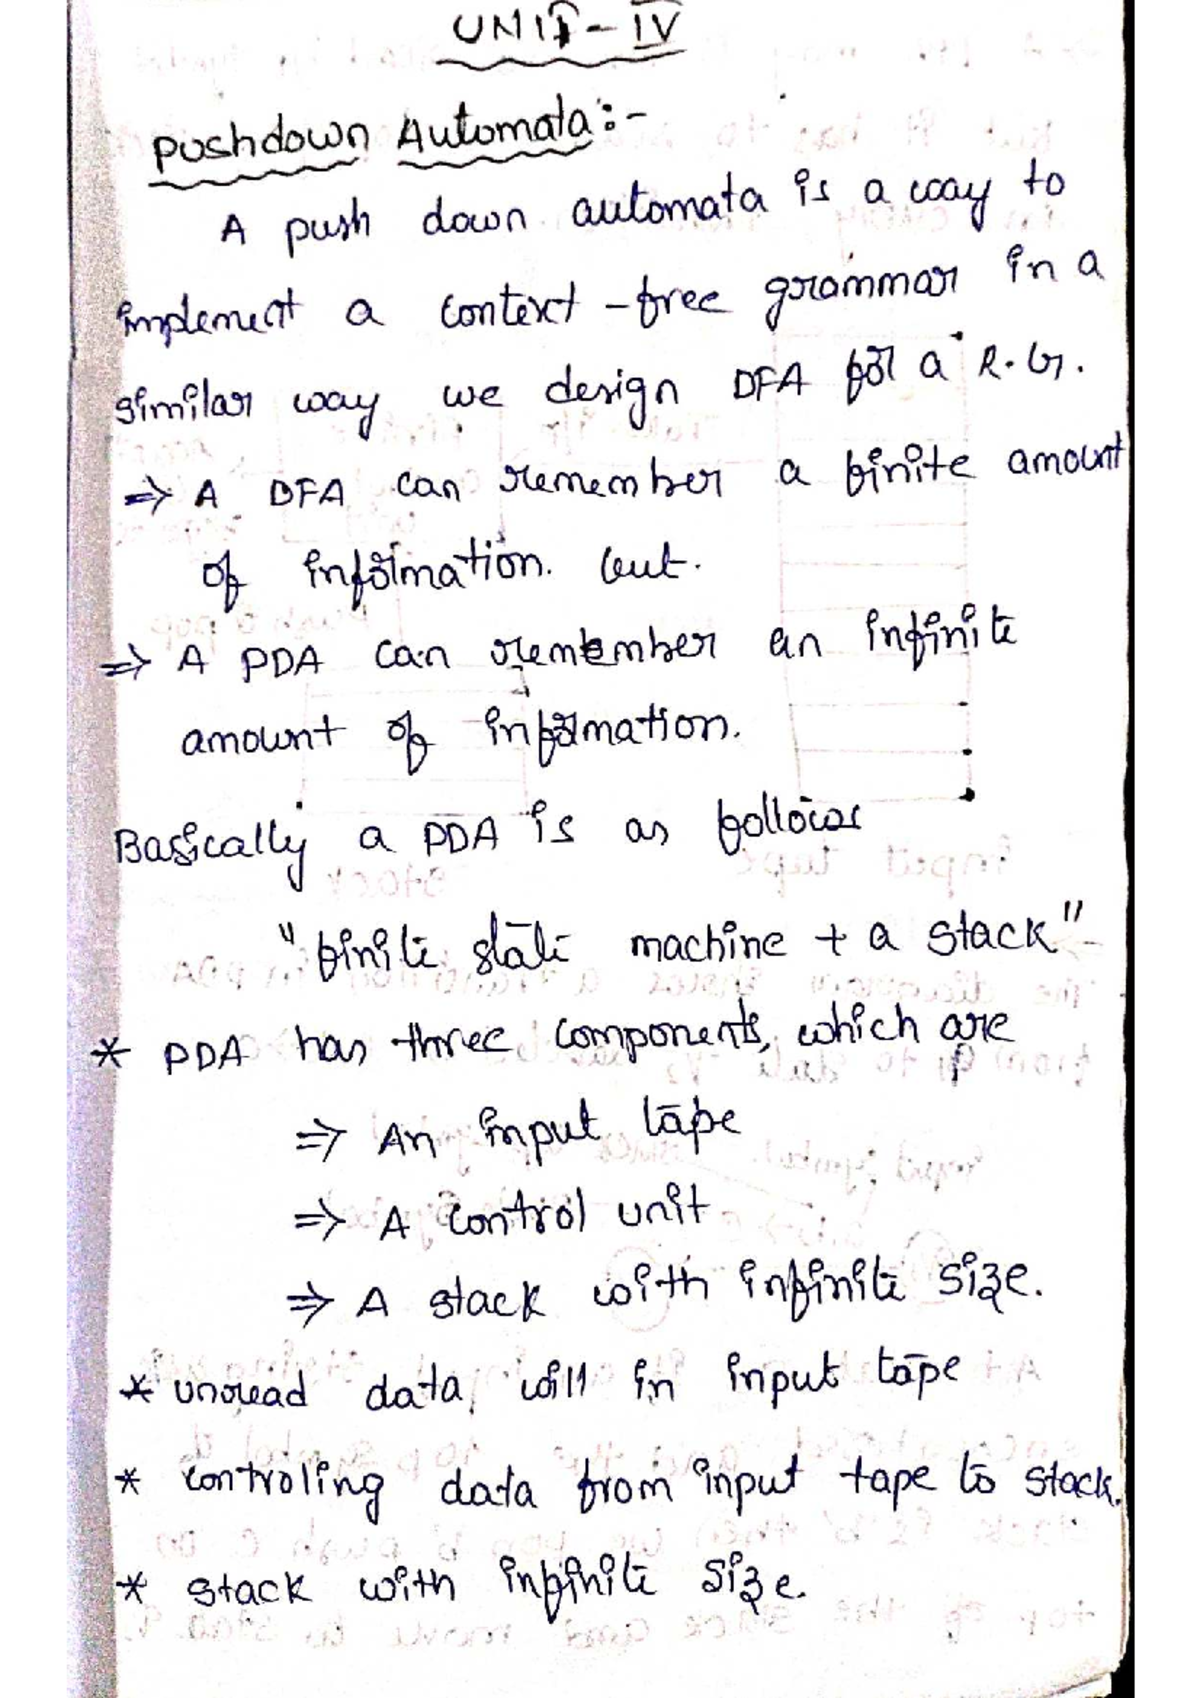 UNIT-IV
pushdown Automata:-
A push down automata is a way to
implement a context-free grammar in a
similar way we design DFA for a R.G.
⇒ A DFA can remember a finite amount
of information. but.
⇒ A PDA can remember an infinite
amount of information.
Basically a PDA is as follows
"finite state machine + a stack"
* PDA has three components, which are
⇒ An input tape
⇒ A control unit
⇒ A stack with infinite size.
* unread data, will in input tape
* controling data from input tape to stack.
* stack with infinite size.